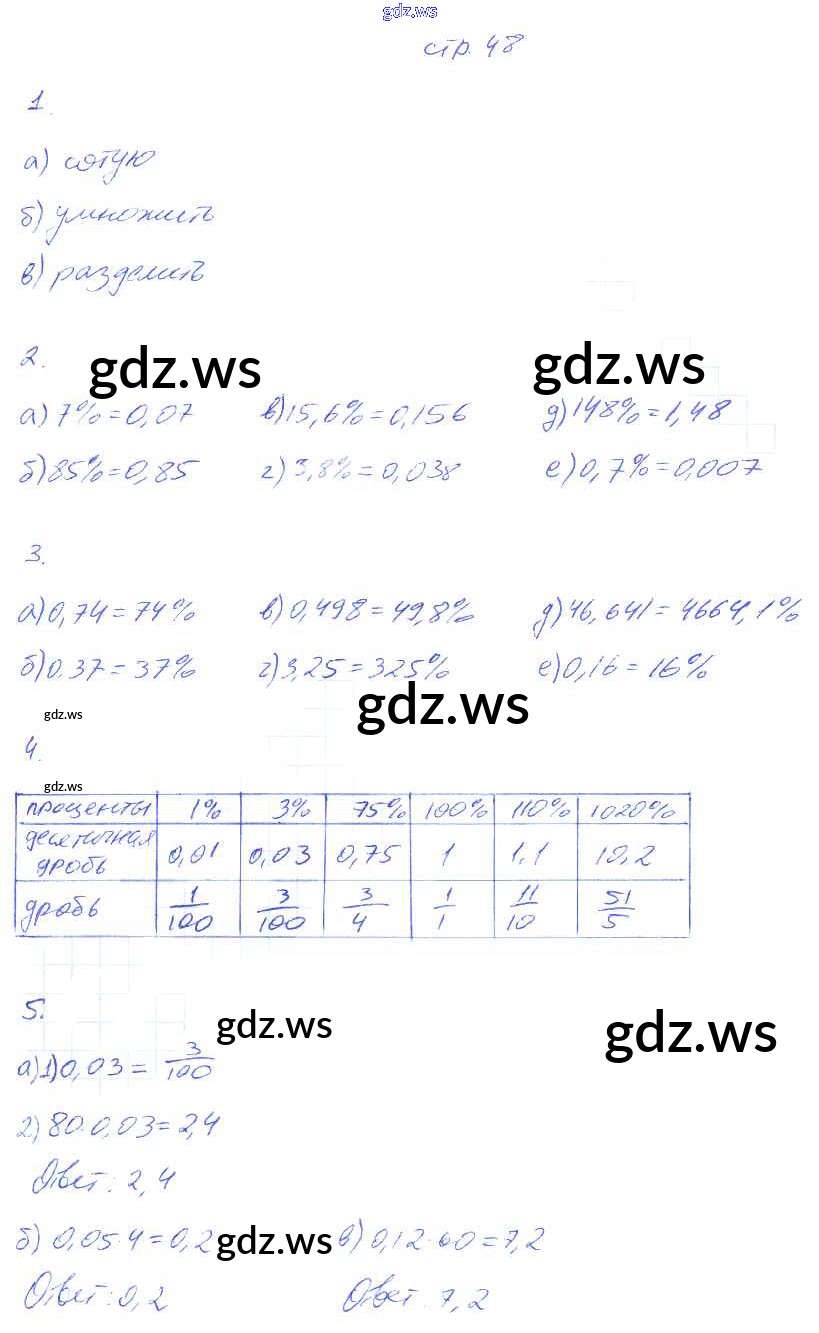 gdz.ws
стр. 48
1.
а) сотую
б) умножить
в) разделить
2.
gdz.ws gdz.ws
а) 7% = 0,07 в) 15,6% = 0,156 д) 148% = 1,48
б) 85% = 0,85 г) 3,8% = 0,038 е) 0,7% = 0,007
3.
а) 0,74 = 74% в) 0,498 = 49,8% д) 46,641 = 4664,1%
б) 0,37 = 37% г) 3,25 = 325% е) 0,16 = 16%
gdz.ws gdz.ws
4.
gdz.ws
проценты 1% 3% 75% 100% 110% 1020%
десятичная дробь 0,01 0,03 0,75 1 1,1 10,2
дробь 1/100 3/100 3/4 1/1 11/10 51/5
5.
gdz.ws gdz.ws
а) 1) 0,03 = 3/100
2) 80·0,03 = 2,4
Ответ: 2,4
б) 0,05·4 = 0,2 gdz.ws в) 0,12·60 = 7,2
Ответ: 0,2 Ответ: 7,2